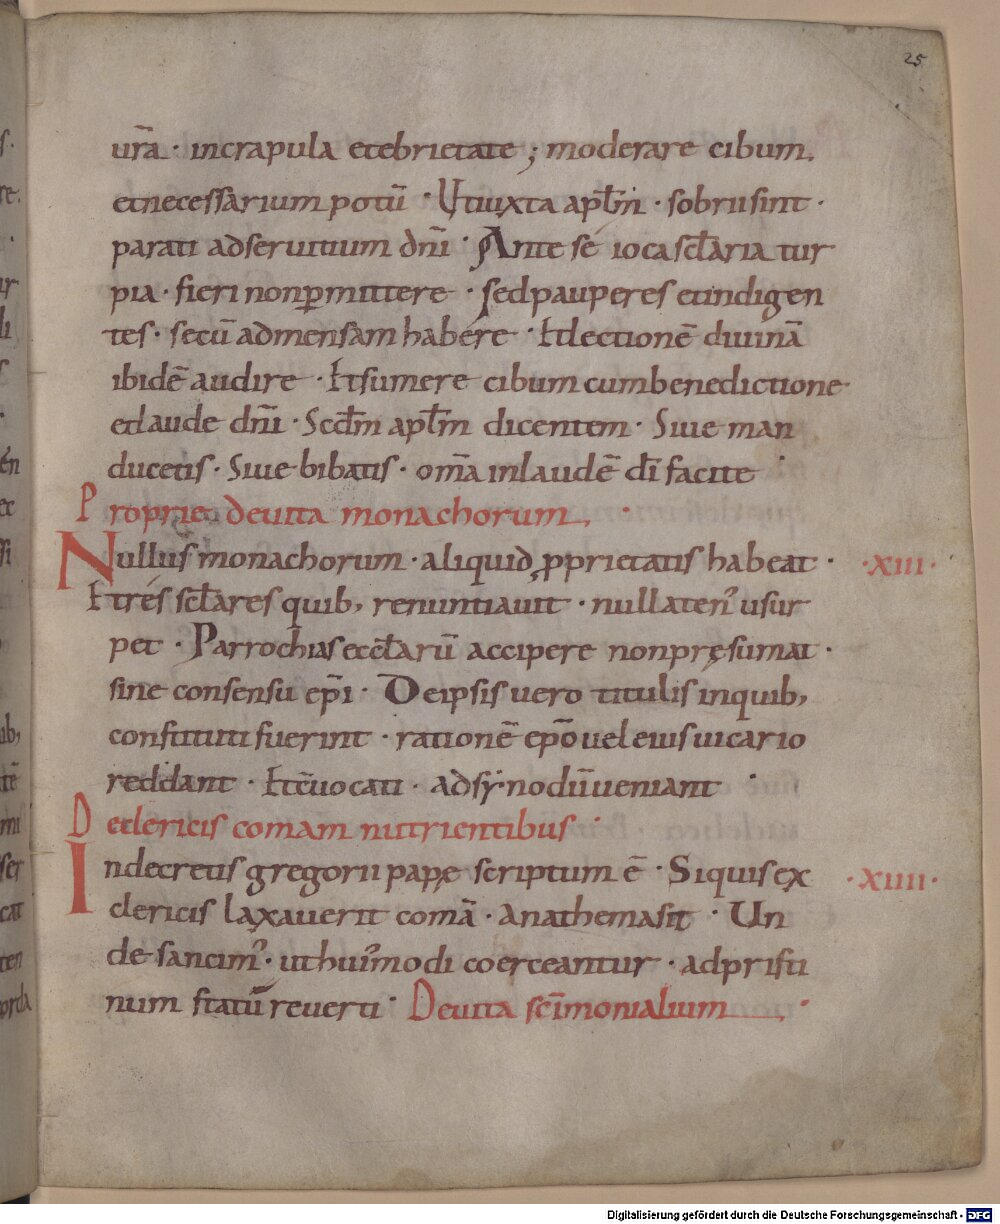 25
ur̄a · incrapula etebrietate ; moderare cibum.
etnecessarium potū · Utiuxta apłm̄ · sobriisint ·
parati adseruitium dn̄i · Ante sé ioca scłaria tur
pia · fieri nonꝑmittere · sedpauperes etindigen
tes · secū admensam habére · Etlectionē diuinā
ibidē audire · Etsumere cibum cumbenedictione ·
etlaude dn̄i · Scdm̄ apłm̄ dicentem · Siue man
ducetis · Siue bibatis · om̄a inlaudē dī facite ·
Proprie deuita monachorum ·
Nullus monachorum · aliquid ꝓprietatis habeat · ·XIII·
Etrés scłares quib; renuntiauit · nullaten᾽ usur
pet · Parrochias eccłarū accipere nonpręsumat ·
sine consensu ep̄i · Deipsis uero titulis inquib;
constituti fuerint · rationē ep̄o uel eius uicario
reddant · Et cēuocati · adsynodū ueniant ·
Declericis comam nutrientibus ·
Indecretis gregorii papę scriptum ē · Siquis ex ·XIIII·
clericis laxauerit comā · Anathemasit · Un
de sancim᾽ · ut hui᾽modi coerceantur · adpristi
num statū reuerti · Deuita scīmonialium ·
Digitalisierung gefördert durch die Deutsche Forschungsgemeinschaft - DFG